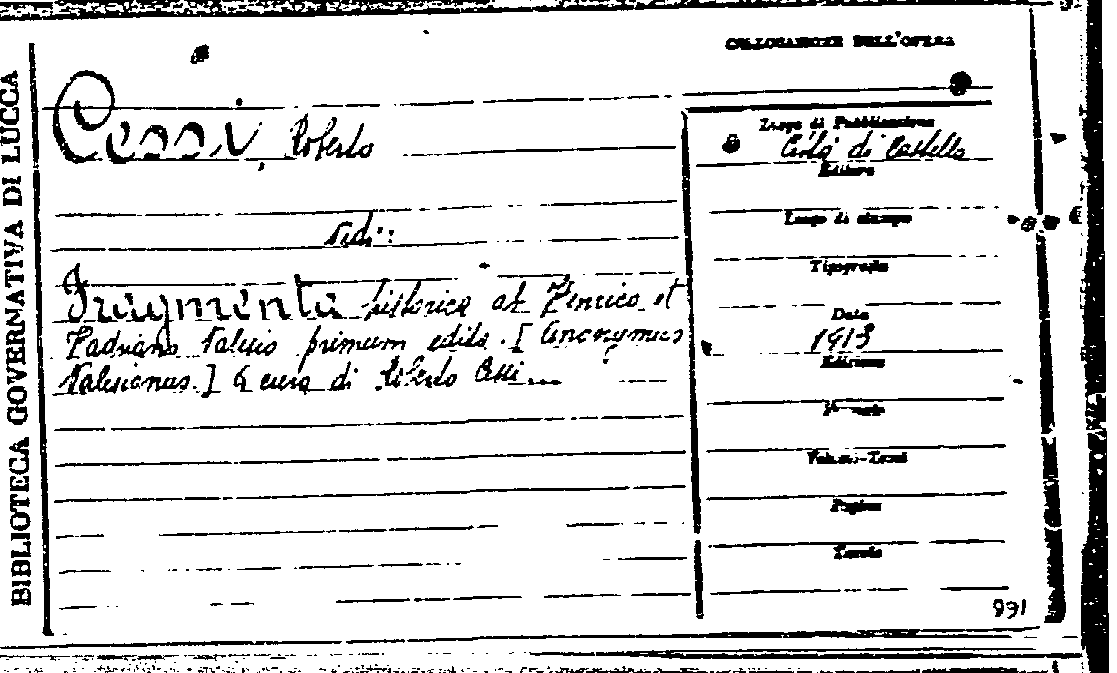 BIBLIOTECA GOVERNATIVA DI LUCCA
COLLOCAZIONE DELL'OPERA
Cessi, Roberto
Vedi:
Fragmenta historica ab Henrico et
Hadriano Valesio primum edita. [Anonymus
Valesianus.] A cura di Roberto Cessi...
Luogo di Pubblicazione
Città di Castello
Editore
Luogo di stampa
Tipografia
Data
1913
Edizione
Volumi-Tomi
Pagine
Tavole
931